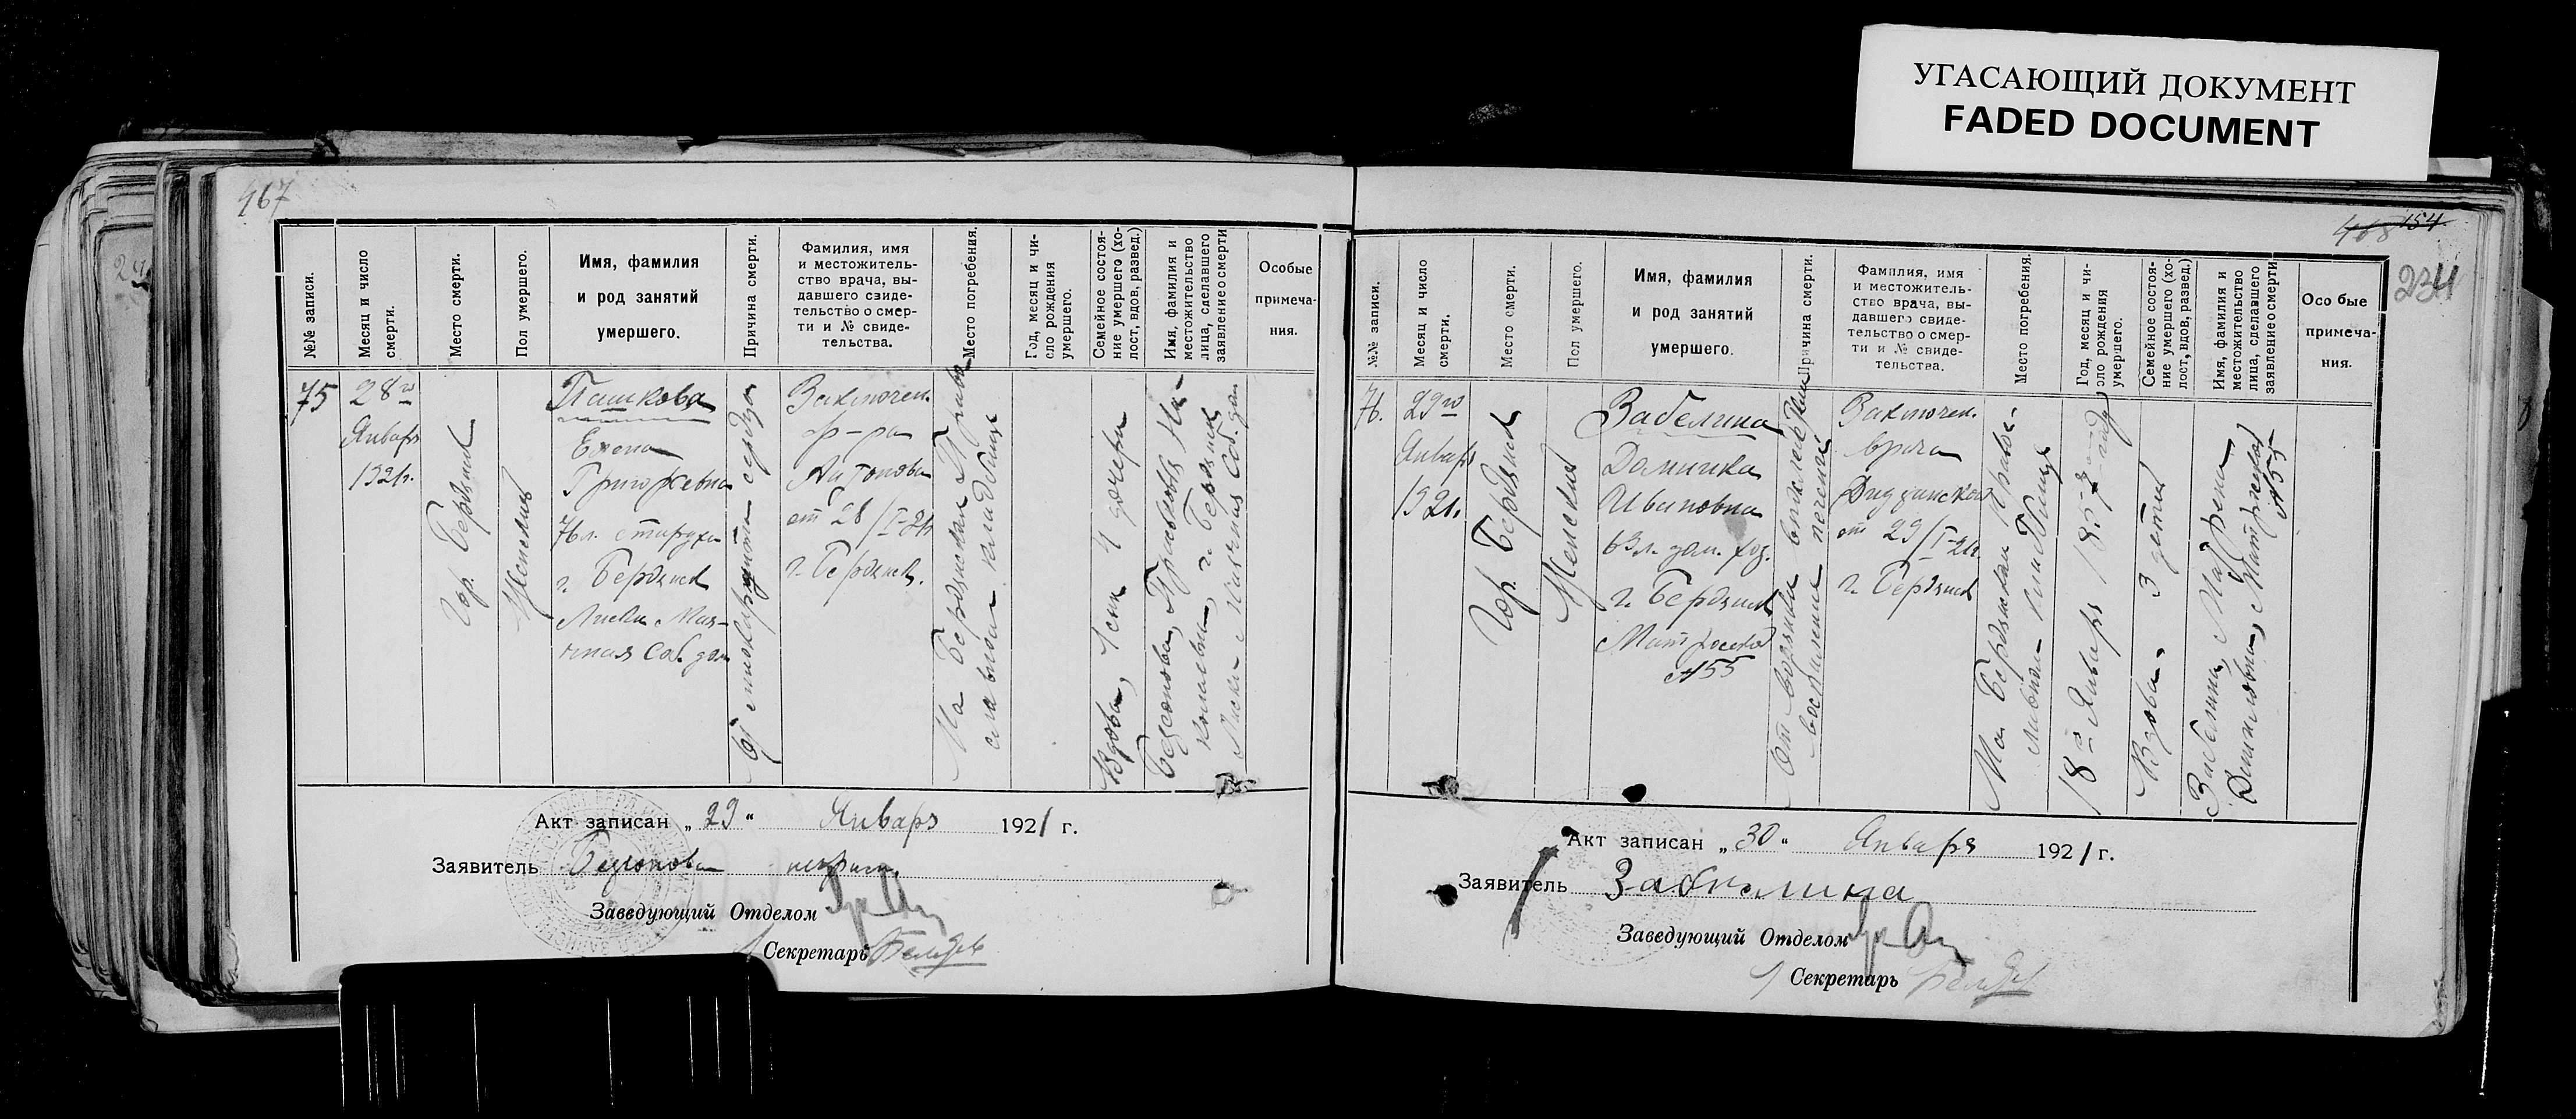 УГАСАЮЩИЙ ДОКУМЕНТ
FADED DOCUMENT
467
№№ записи.
Месяц и число
смерти.
Место смерти.
Пол умершего.
Имя, фамилия
и род занятий
умершего.
Причина смерти.
Фамилия, имя
и местожитель-
ство врача, вы-
давшего свиде-
тельство о смер-
ти и № свиде-
тельства.
Место погребения.
Год, месяц и чи-
сло рождения
умершего.
Семейное состоя-
ние умершего (хо-
лост, вдов, развед.)
Имя, фамилия и
местожительство
лица, сделавшего
заявление о смерти
Особые
примеча-
ния.
75
28го
Января
1921г.
Гор. Бердянск
Женский
Пашкова
Елена
Григорьевна
76л. старуха
г. Бердянск
Лиски Мая-
чная Соб. дом
сердца
Заключен.
д-ра
Антонова
от 28/I-21г
г. Бердянск.
На Бердянском Право-
славном кладбище
Вдова, 1 сын 4 дочери
Безсонова, Прасковья Ни-
колаевна, г. Бердянск
Лиски Маячная Соб. дом
Акт записан „ 29 " Января 1921 г.
Заявитель Безсонова неграм.
Заведующий Отделом
Секретарь
154
234
№№ записи.
Месяц и число
смерти.
Место смерти.
Пол умершего.
Имя, фамилия
и род занятий
умершего.
Причина смерти.
Фамилия, имя
и местожитель-
ство врача, вы-
давшего свиде-
тельство о смер-
ти и № свиде-
тельства.
Место погребения.
Год, месяц и чи-
сло рождения
умершего.
Семейное состоя-
ние умершего (хо-
лост, вдов, развед.)
Имя, фамилия и
местожительство
лица, сделавшего
заявление о смерти
Осо бые
примеча-
ния.
76.
29го
Января
1921г.
Гор. Бердянск
Женский
Забелина
Домника
Ивановна
63л. дом. хоз.
г. Бердянск
Матросская
№55
От водянки вследствие
воспаления печени
Заключен.
врача
от 29/I-21г.
г. Бердянск
На Бердянском правос-
лавном кладбище
18го Января 1857 году
Вдова, 3 детей
Забелина, Марфена
Даниловна, Матросская
№55
Акт записан „ 30 " Января 1921 г.
Заявитель Забелина
Заведующий Отделом
Секретарь